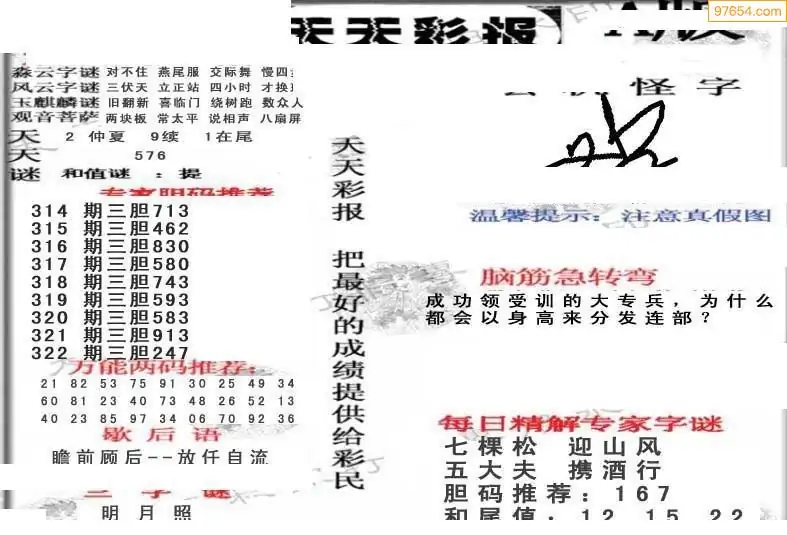 97654.com
天天彩报
森云字谜 对不住 燕尾服 交际舞 慢四
风云字谜 三伏天 立正站 四小时 才换
玉麒麟谜 旧翻新 喜临门 绕树跑 数众人
观音菩萨 两块板 常太平 说相声 八扇屏
天 2 仲夏 9续 1在尾
天 576
谜 和值谜 : 提
专家胆码推荐
314 期三胆713
315 期三胆462
316 期三胆830
317 期三胆580
318 期三胆743
319 期三胆593
320 期三胆583
321 期三胆913
322 期三胆247
万能两码推荐:
21 82 53 75 91 30 25 49 34
60 81 23 40 73 48 26 52 13
40 23 85 97 34 06 70 92 36
歇后语
瞻前顾后--放任自流
三字谜
明月照
天天彩报 把最好的成绩提供给彩民
怪字
温馨提示: 注意真假图
脑筋急转弯
成功领受训的大专兵，为什么
都会以身高来分发连部？
每日精解专家字谜
七棵松 迎山风
五大夫 携酒行
胆码推荐: 167
和尾值: 12 15 22